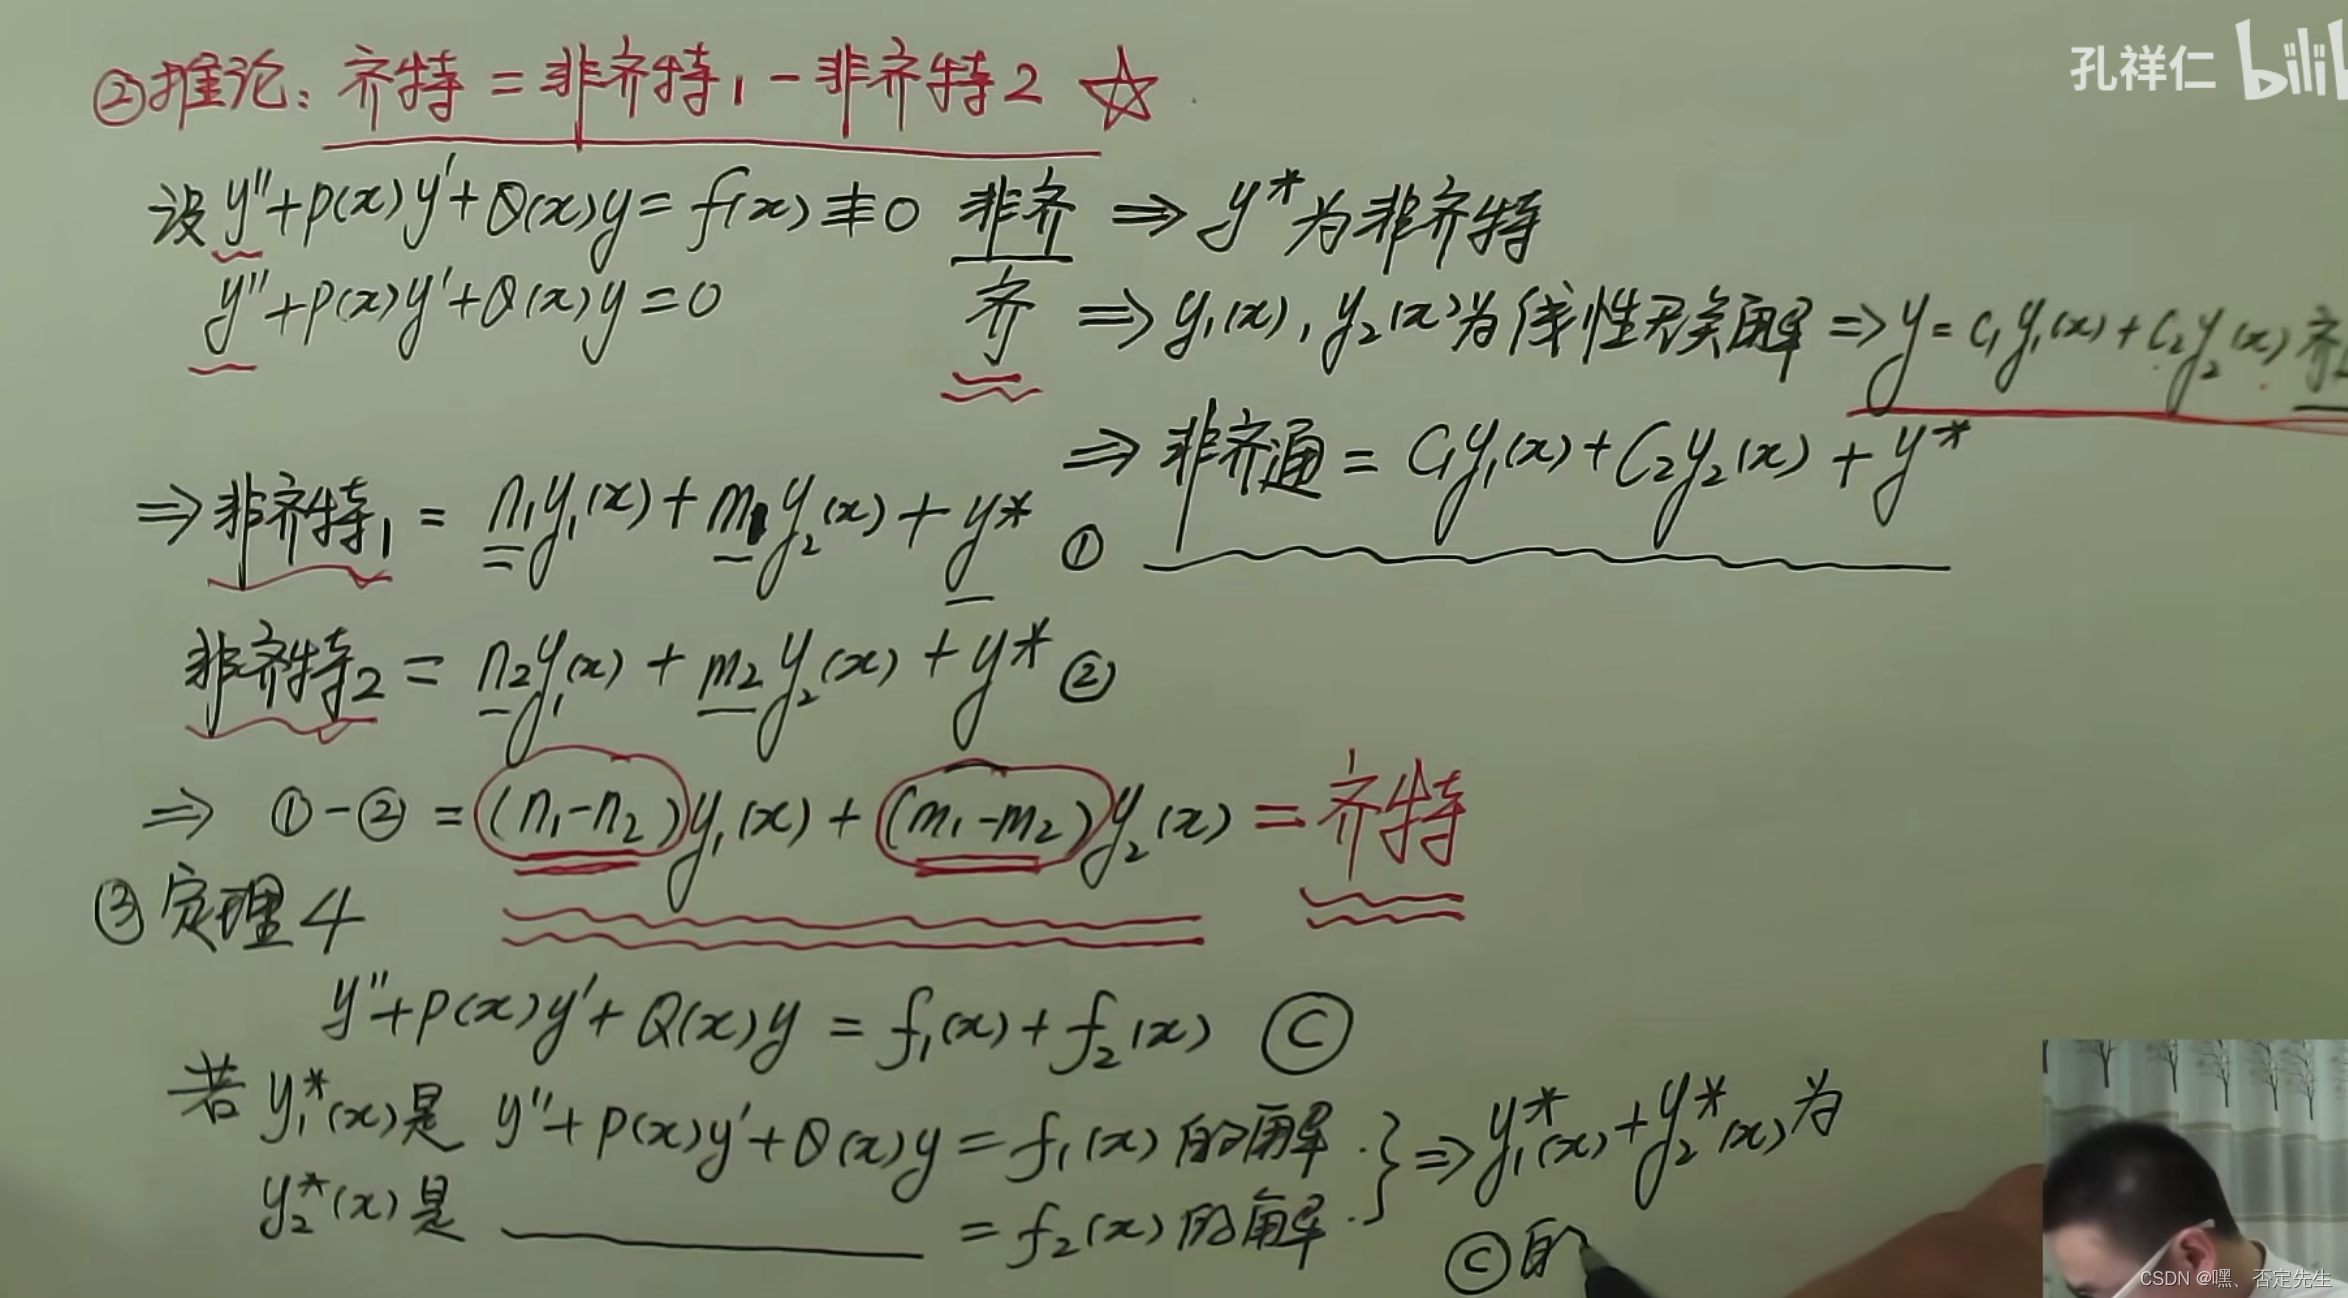 ②推论：齐特 = 非齐特1 - 非齐特2 ☆
孔祥仁 bilib
设 y''+p(x)y'+Q(x)y=f(x)≢0 非齐 ⇒ y*为非齐特
y''+p(x)y'+Q(x)y=0 齐 ⇒ y₁(x), y₂(x)为线性无关解 ⇒ y=C₁y₁(x)+C₂y₂(x) 齐
⇒ 非齐通 = C₁y₁(x)+C₂y₂(x)+y*
⇒ 非齐特1 = n₁y₁(x)+m₁y₂(x)+y* ①
非齐特2 = n₂y₁(x)+m₂y₂(x)+y* ②
⇒ ①-② = (n₁-n₂)y₁(x)+(m₁-m₂)y₂(x) = 齐特
③定理4
y''+p(x)y'+Q(x)y = f₁(x)+f₂(x) Ⓒ
若 y₁*(x)是 y''+p(x)y'+Q(x)y = f₁(x) 的解. } ⇒ y₁*(x)+y₂*(x)为
y₂*(x)是 ———— = f₂(x) 的解.
Ⓒ的
CSDN @嘿、否定先生